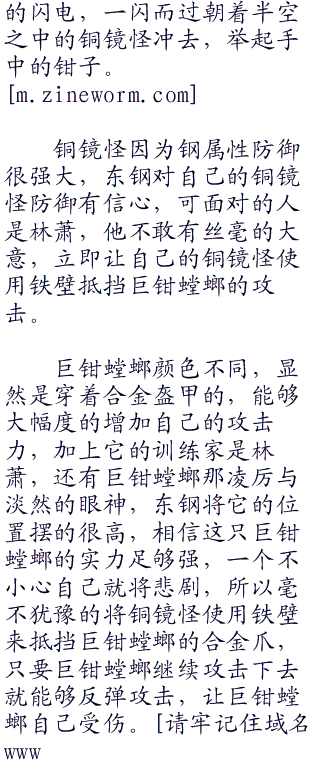 的闪电，一闪而过朝着半空
之中的铜镜怪冲去，举起手
中的钳子。
[m.zineworm.com]
铜镜怪因为钢属性防御
很强大，东钢对自己的铜镜
怪防御有信心，可面对的人
是林萧，他不敢有丝毫的大
意，立即让自己的铜镜怪使
用铁壁抵挡巨钳螳螂的攻
击。
巨钳螳螂颜色不同，显
然是穿着合金盔甲的，能够
大幅度的增加自己的攻击
力，加上它的训练家是林
萧，还有巨钳螳螂那凌厉与
淡然的眼神，东钢将它的位
置摆的很高，相信这只巨钳
螳螂的实力足够强，一个不
小心自己就将悲剧，所以毫
不犹豫的将铜镜怪使用铁壁
来抵挡巨钳螳螂的合金爪，
只要巨钳螳螂继续攻击下去
就能够反弹攻击，让巨钳螳
螂自己受伤。[请牢记住域名
www